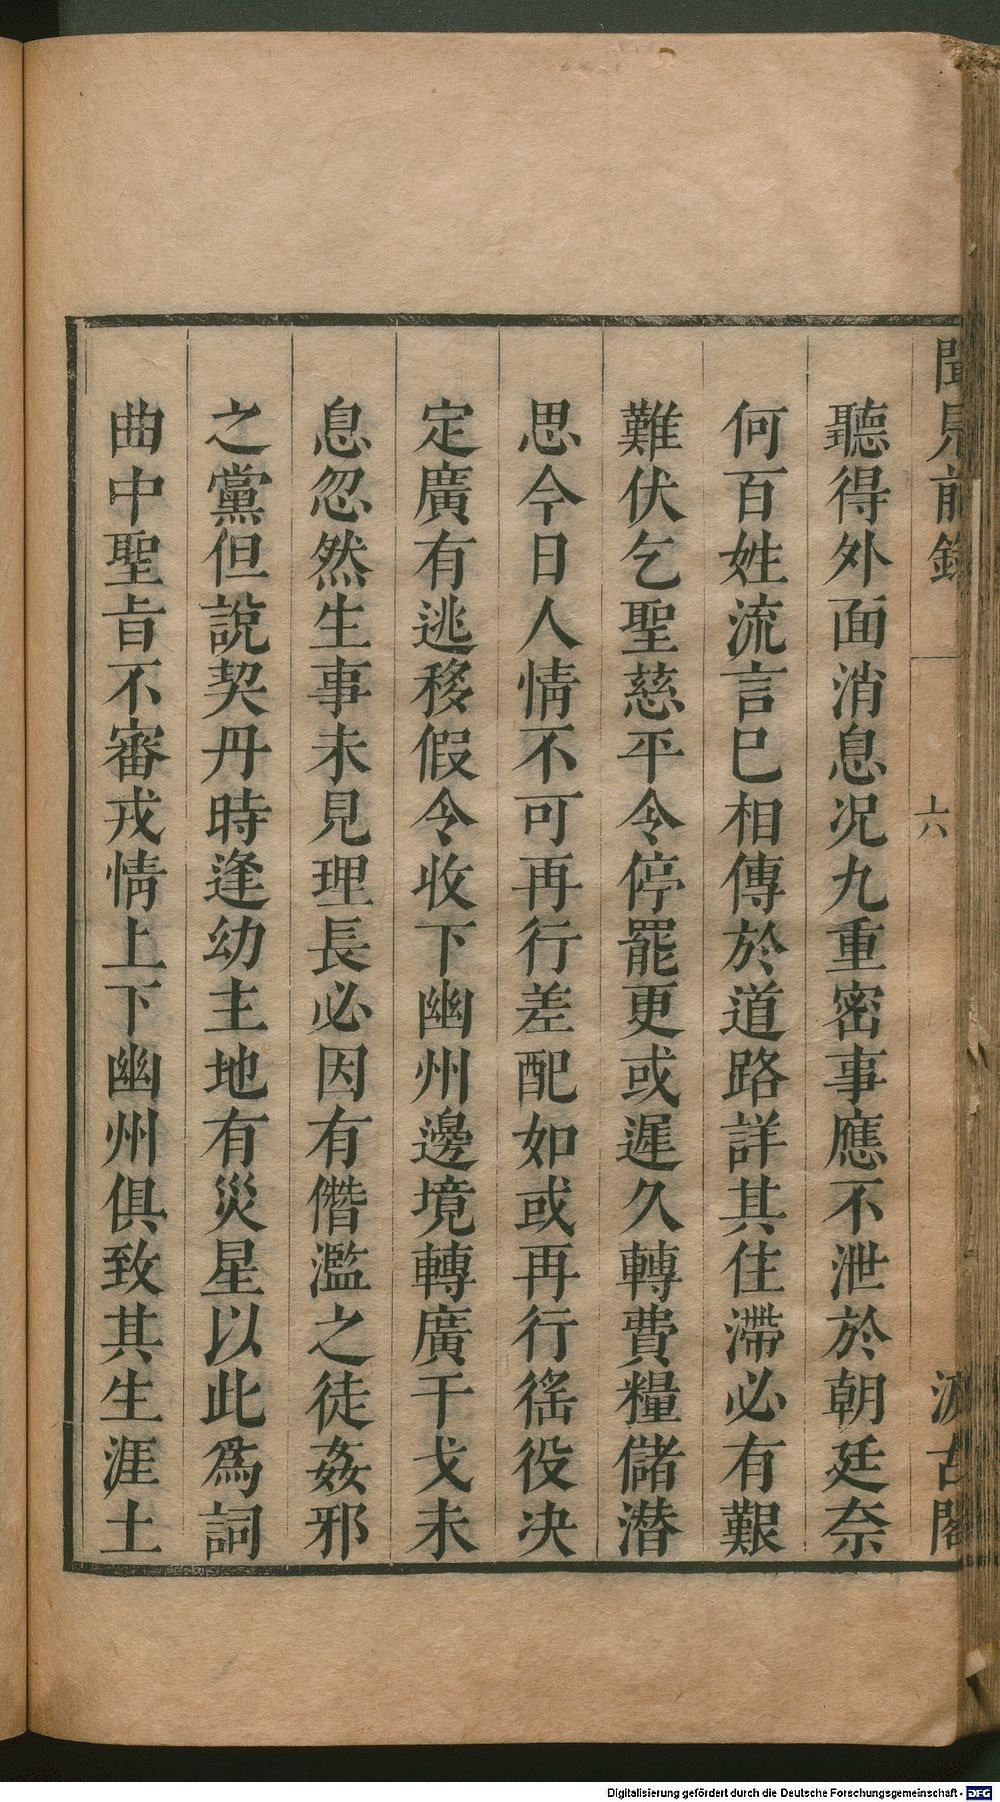 聞見前錄
六
汲古閣
聽得外面消息况九重密事應不泄於朝廷奈
何百姓流言巳相傳於道路詳其住滯必有艱
難伏乞聖慈平令停罷更或遲久轉費糧儲潜
思今日人情不可再行差配如或再行徭役决
定廣有逃移假令收下幽州邊境轉廣干戈未
息忽然生事未見理長必因有僭濫之徒姦邪
之黨但說契丹時逢幼主地有災星以此爲詞
曲中聖旨不審戎情上下幽州俱致其生涯土
Digitalisierung gefördert durch die Deutsche Forschungsgemeinschaft - DFG